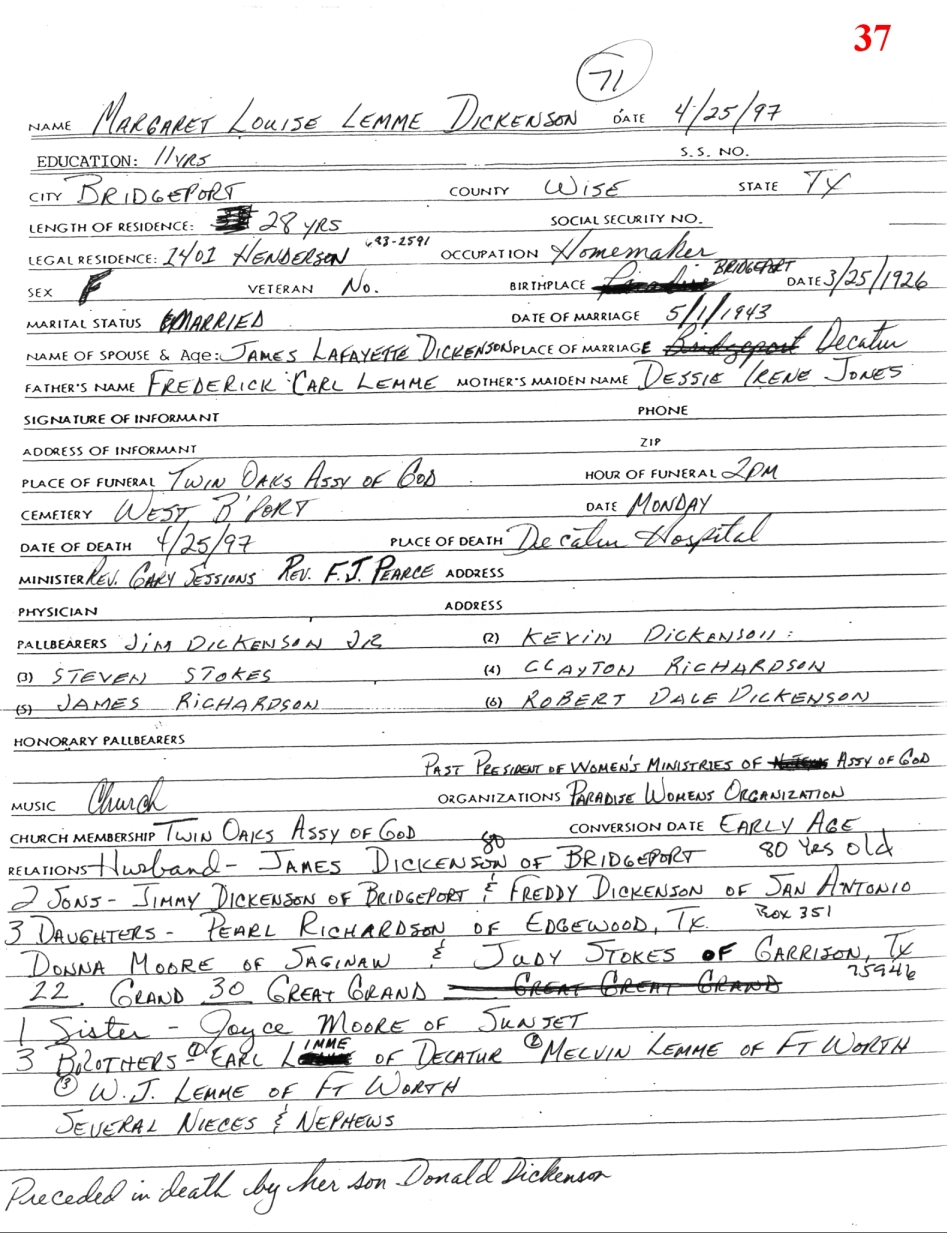 37
71
NAME MARGARET LOUISE LEMME DICKENSON DATE 4/25/97
EDUCATION: 11 YRS S.S. NO.
CITY BRIDGEPORT COUNTY WISE STATE TX
LENGTH OF RESIDENCE: 28 YRS SOCIAL SECURITY NO.
LEGAL RESIDENCE: 1401 HENDERSON 683-2591 OCCUPATION Homemaker
SEX F VETERAN No. BIRTHPLACE Paradise BRIDGEPORT DATE 3/25/1926
MARITAL STATUS MARRIED DATE OF MARRIAGE 5/1/1943
NAME OF SPOUSE & Age: JAMES LAFAYETTE DICKENSON PLACE OF MARRIAGE Bridgeport Decatur
FATHER'S NAME FREDERICK CARL LEMME MOTHER'S MAIDEN NAME DESSIE IRENE JONES
SIGNATURE OF INFORMANT PHONE
ADDRESS OF INFORMANT ZIP
PLACE OF FUNERAL TWIN OAKS ASSY OF GOD HOUR OF FUNERAL 2PM
CEMETERY WEST B'PORT DATE MONDAY
DATE OF DEATH 4/25/97 PLACE OF DEATH Decatur Hospital
MINISTER REV. GARY SESSIONS REV. F.J. PEARCE ADDRESS
PHYSICIAN ADDRESS
PALLBEARERS JIM DICKENSON JR (2) KEVIN DICKENSON
(3) STEVEN STOKES (4) CLAYTON RICHARDSON
(5) JAMES RICHARDSON (6) ROBERT DALE DICKENSON
HONORARY PALLBEARERS
PAST PRESIDENT OF WOMEN'S MINISTRIES OF ASSY OF GOD
MUSIC Church ORGANIZATIONS PARADISE WOMENS ORGANIZATION
CHURCH MEMBERSHIP TWIN OAKS ASSY OF GOD CONVERSION DATE EARLY AGE
RELATIONS Husband - JAMES DICKENSON 80 OF BRIDGEPORT 80 Yrs old
2 SONS - JIMMY DICKENSON OF BRIDGEPORT & FREDDY DICKENSON OF SAN ANTONIO
3 DAUGHTERS - PEARL RICHARDSON OF EDGEWOOD, TX. Box 351
DONNA MOORE OF SAGINAW & JUDY STOKES OF GARRISON, TX 75946
22 GRAND 30 GREAT GRAND GREAT GREAT GRAND
1 Sister - Joyce MOORE OF SUNSET
3 BROTHERS - ① EARL LIMME OF DECATUR ② MELVIN LEMME OF FT WORTH
③ W.J. LEMME OF FT WORTH
SEVERAL NIECES & NEPHEWS
Preceded in death by her son Donald Dickenson